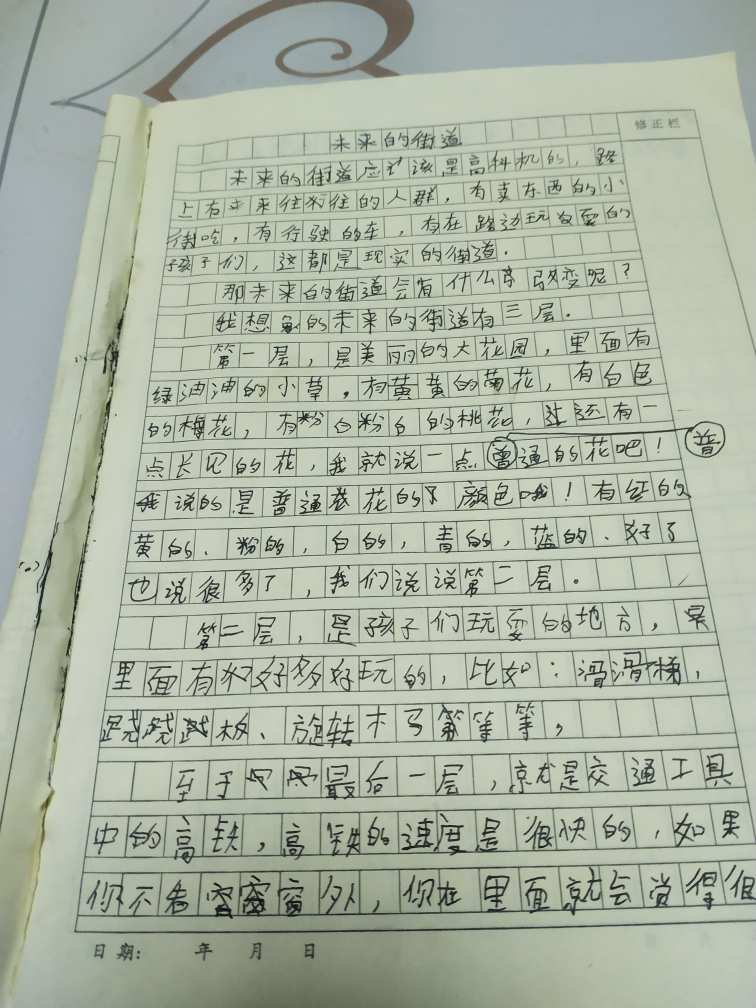 修正栏
未来的街道
未来的街道应该是高科机的，路
上有来来往往的人群，有卖东西的小
街吃，有行驶的车，有在路边玩耍的
孩子们，这都是现实的街道．
那未来的街道会有什么改变呢？
我想象的未来的街道有三层．
第一层，是美丽的大花园，里面有
绿油油的小草．有黄黄的菊花，有白色
的梅花，有粉白粉白的桃花，还有一
点长见的花，我就说一点曾通的花吧！普
我说的是普通花的颜色哦！有红的
黄的、粉的，白的，青的，蓝的、好了
也说很多了，我们说说第二层．
第二层，是孩子们玩耍的地方，
里面有好多好玩的，比如：滑滑梯，
跷跷板、旋转木马等等，
至于最后一层，就是交通工具
中的高铁，高铁的速度是很快的，如果
你不看窗外，你在里面就会觉得很
日期： 年 月 日